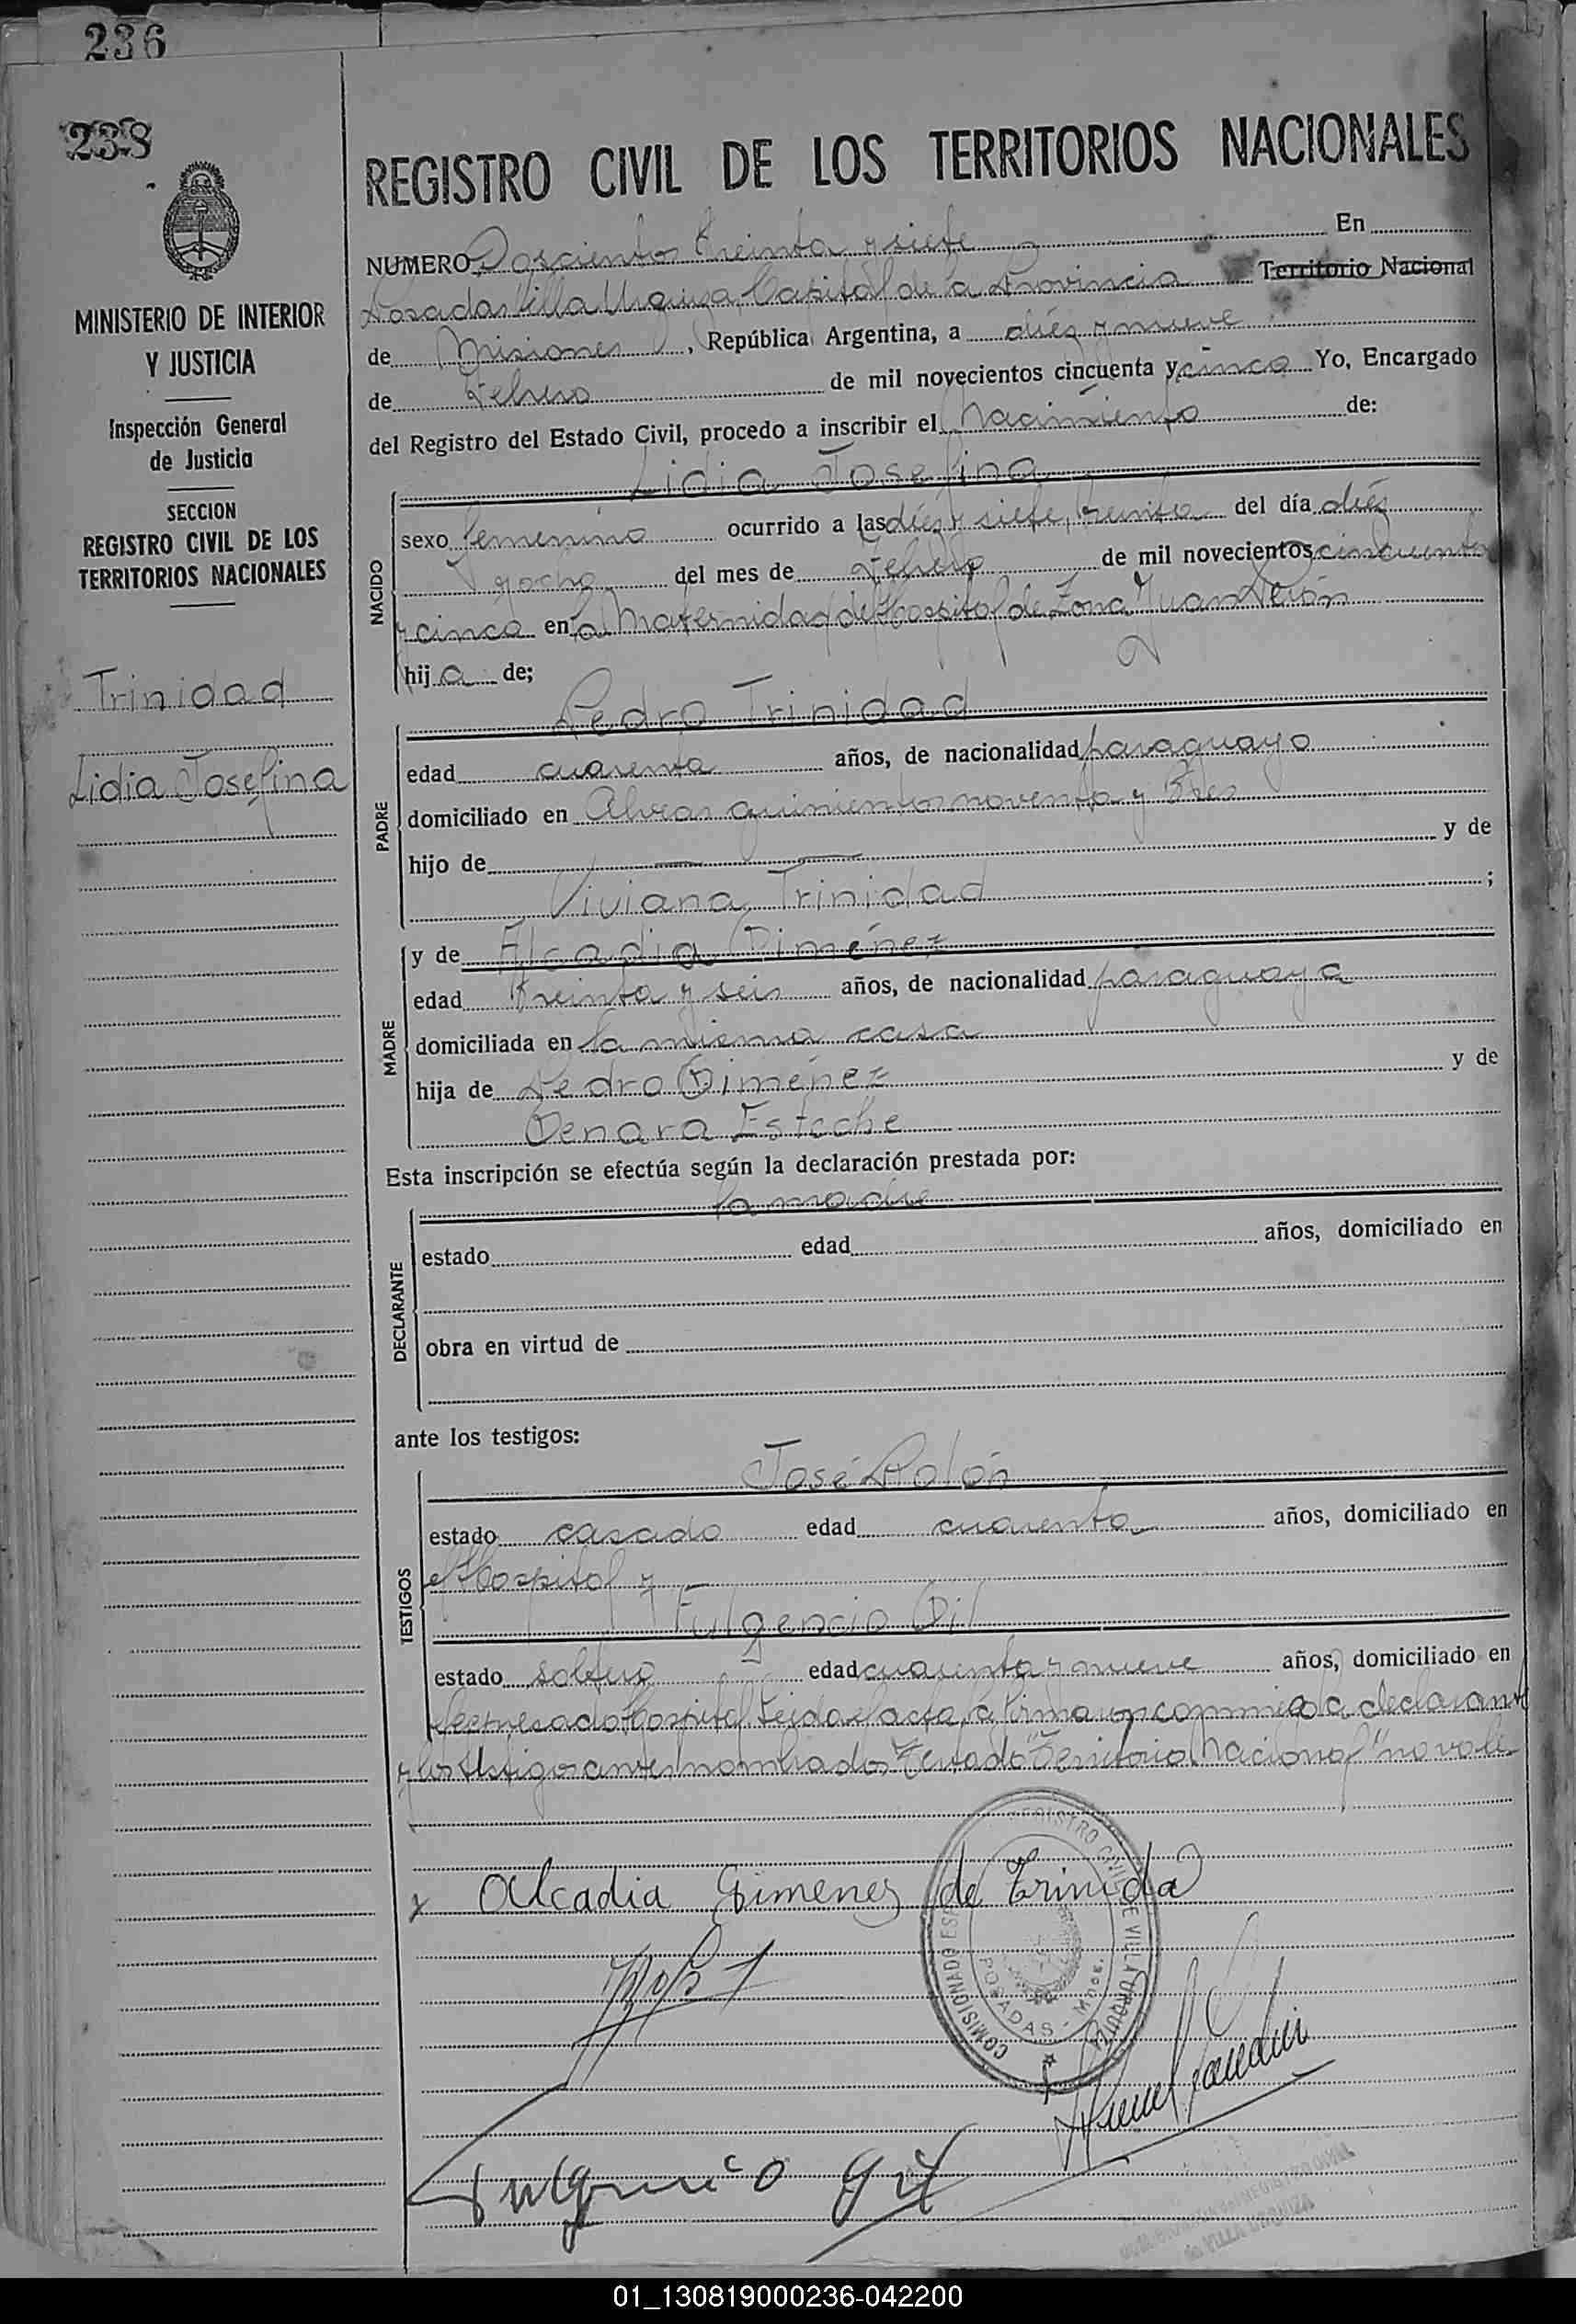 236
238
MINISTERIO DE INTERIOR
Y JUSTICIA
Inspección General
de Justicia
SECCION
REGISTRO CIVIL DE LOS
TERRITORIOS NACIONALES
Trinidad
Lidia Josefina
REGISTRO CIVIL DE LOS TERRITORIOS NACIONALES
NUMERO Doscientos treinta y siete En
Posadas Villa Urquiza, Capital de la Provincia Territorio Nacional
de Misiones, República Argentina, a diéz y nueve
de Febrero de mil novecientos cincuenta y cinco Yo, Encargado
del Registro del Estado Civil, procedo a inscribir el Nacimiento de:
Lidia Josefina
NACIDO
sexo femenino ocurrido a las diéz y siete, treinta del día diéz
y ocho del mes de Febrero de mil novecientos cincuenta
y cinco en la Maternidad del Hospital de Zona Juan Perón
hija de;
Pedro Trinidad
PADRE
edad cuarenta años, de nacionalidad paraguayo
domiciliado en Alvear quinientos noventa y tres
hijo de y de
Viviana Trinidad ;
MADRE
y de Alcadia Gimenez
edad treinta y seis años, de nacionalidad paraguaya
domiciliada en la misma casa
hija de Pedro Gimenez y de
Genara Esteche
Esta inscripción se efectúa según la declaración prestada por:
la madre
DECLARANTE
estado edad años, domiciliado en
obra en virtud de
ante los testigos:
José Rolón
TESTIGOS
estado casado edad cuarenta años, domiciliado en
el Hospital y
Fulgencio Gil
estado soltero edad cuarenta y nueve años, domiciliado en
el expresado Hospital. Leida el acta, la firmaron conmigo la declarante
y los testigos antes nombrados "Testado" Territorio Nacional "no vale
x Alcadia Gimenez de Trinida
COMISIONADO REGISTRO CIVIL DE VILLA URQUIZA
POSADAS - Mnes.
Fulgencio Gil
de VILLA URQUIZA
01_130819000236-042200